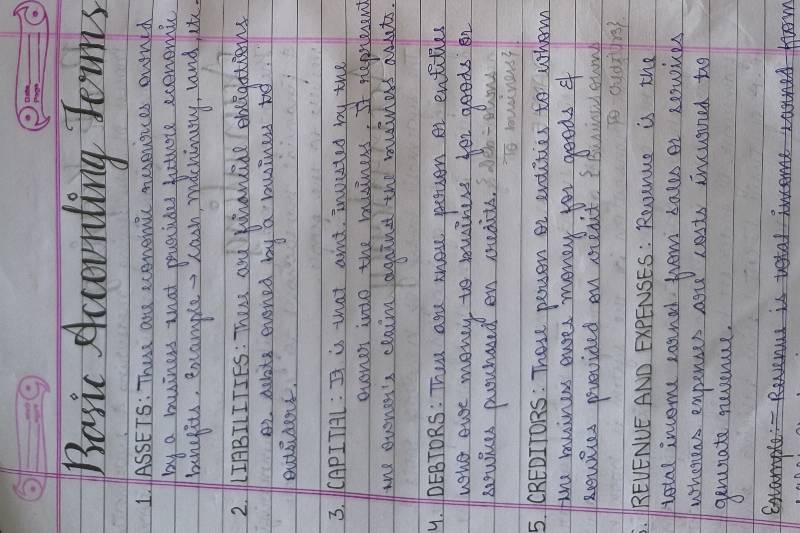 Basic Accounting Terms
1. ASSETS: These are economic resources owned
by a business that provides future economic
benefits. Example → cash, machinery, land, etc.
2. LIABILITIES: There are financial obligations
or debts owned by a business to
outsiders.
3. CAPITAL: It is that amt invested by the
owner into the business It represent
the owner's claim against the business assets.
4. DEBTORS: There are those person or entities
who owe money to business for goods or
services purchased on credits. { Deb - owns
To business?
5. CREDITORS: Those person or entities to whom
the business owes money for goods &
services provided on credit. { Business owns
To Creditors?
6. REVENUE AND EXPENSES: Revenue is the
total income earned from sales or services
whereas expenses are costs incurred to
generate revenue.
Example:- Revenue is total income earned from